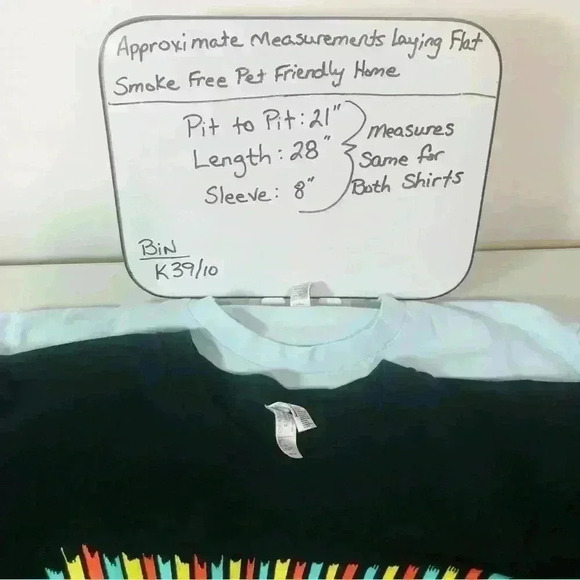 Approximate Measurements Laying Flat
Smoke Free Pet Friendly Home
Pit to Pit: 21"
Length: 28"
Sleeve: 8"
Measures
Same for
Both Shirts
BIN
K39/10